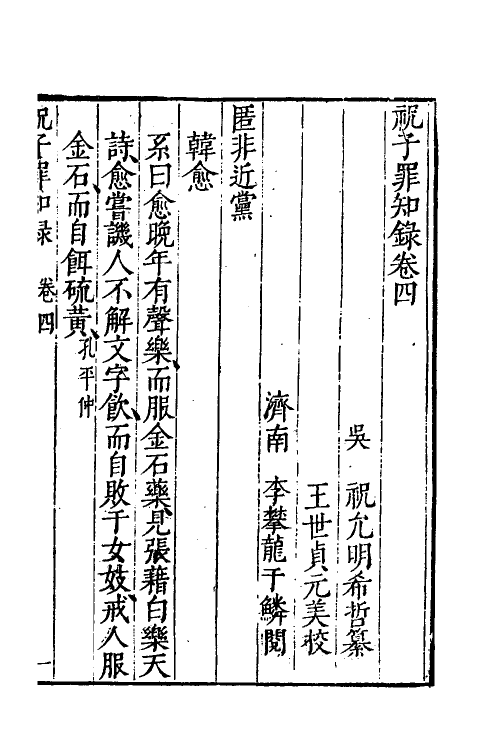 祝子罪知錄卷四
吳　祝允明希哲纂
王世貞元美校
濟南　李攀龍于鱗閱
匿非近黨
韓愈
系曰愈晚年有聲樂、而服金石藥、見張藉白樂天
詩、愈嘗譏人不解文字飲、而自敗于女妓、戒人服
金石、而自餌硫黃、孔平仲
祝子罪知錄　卷四　一